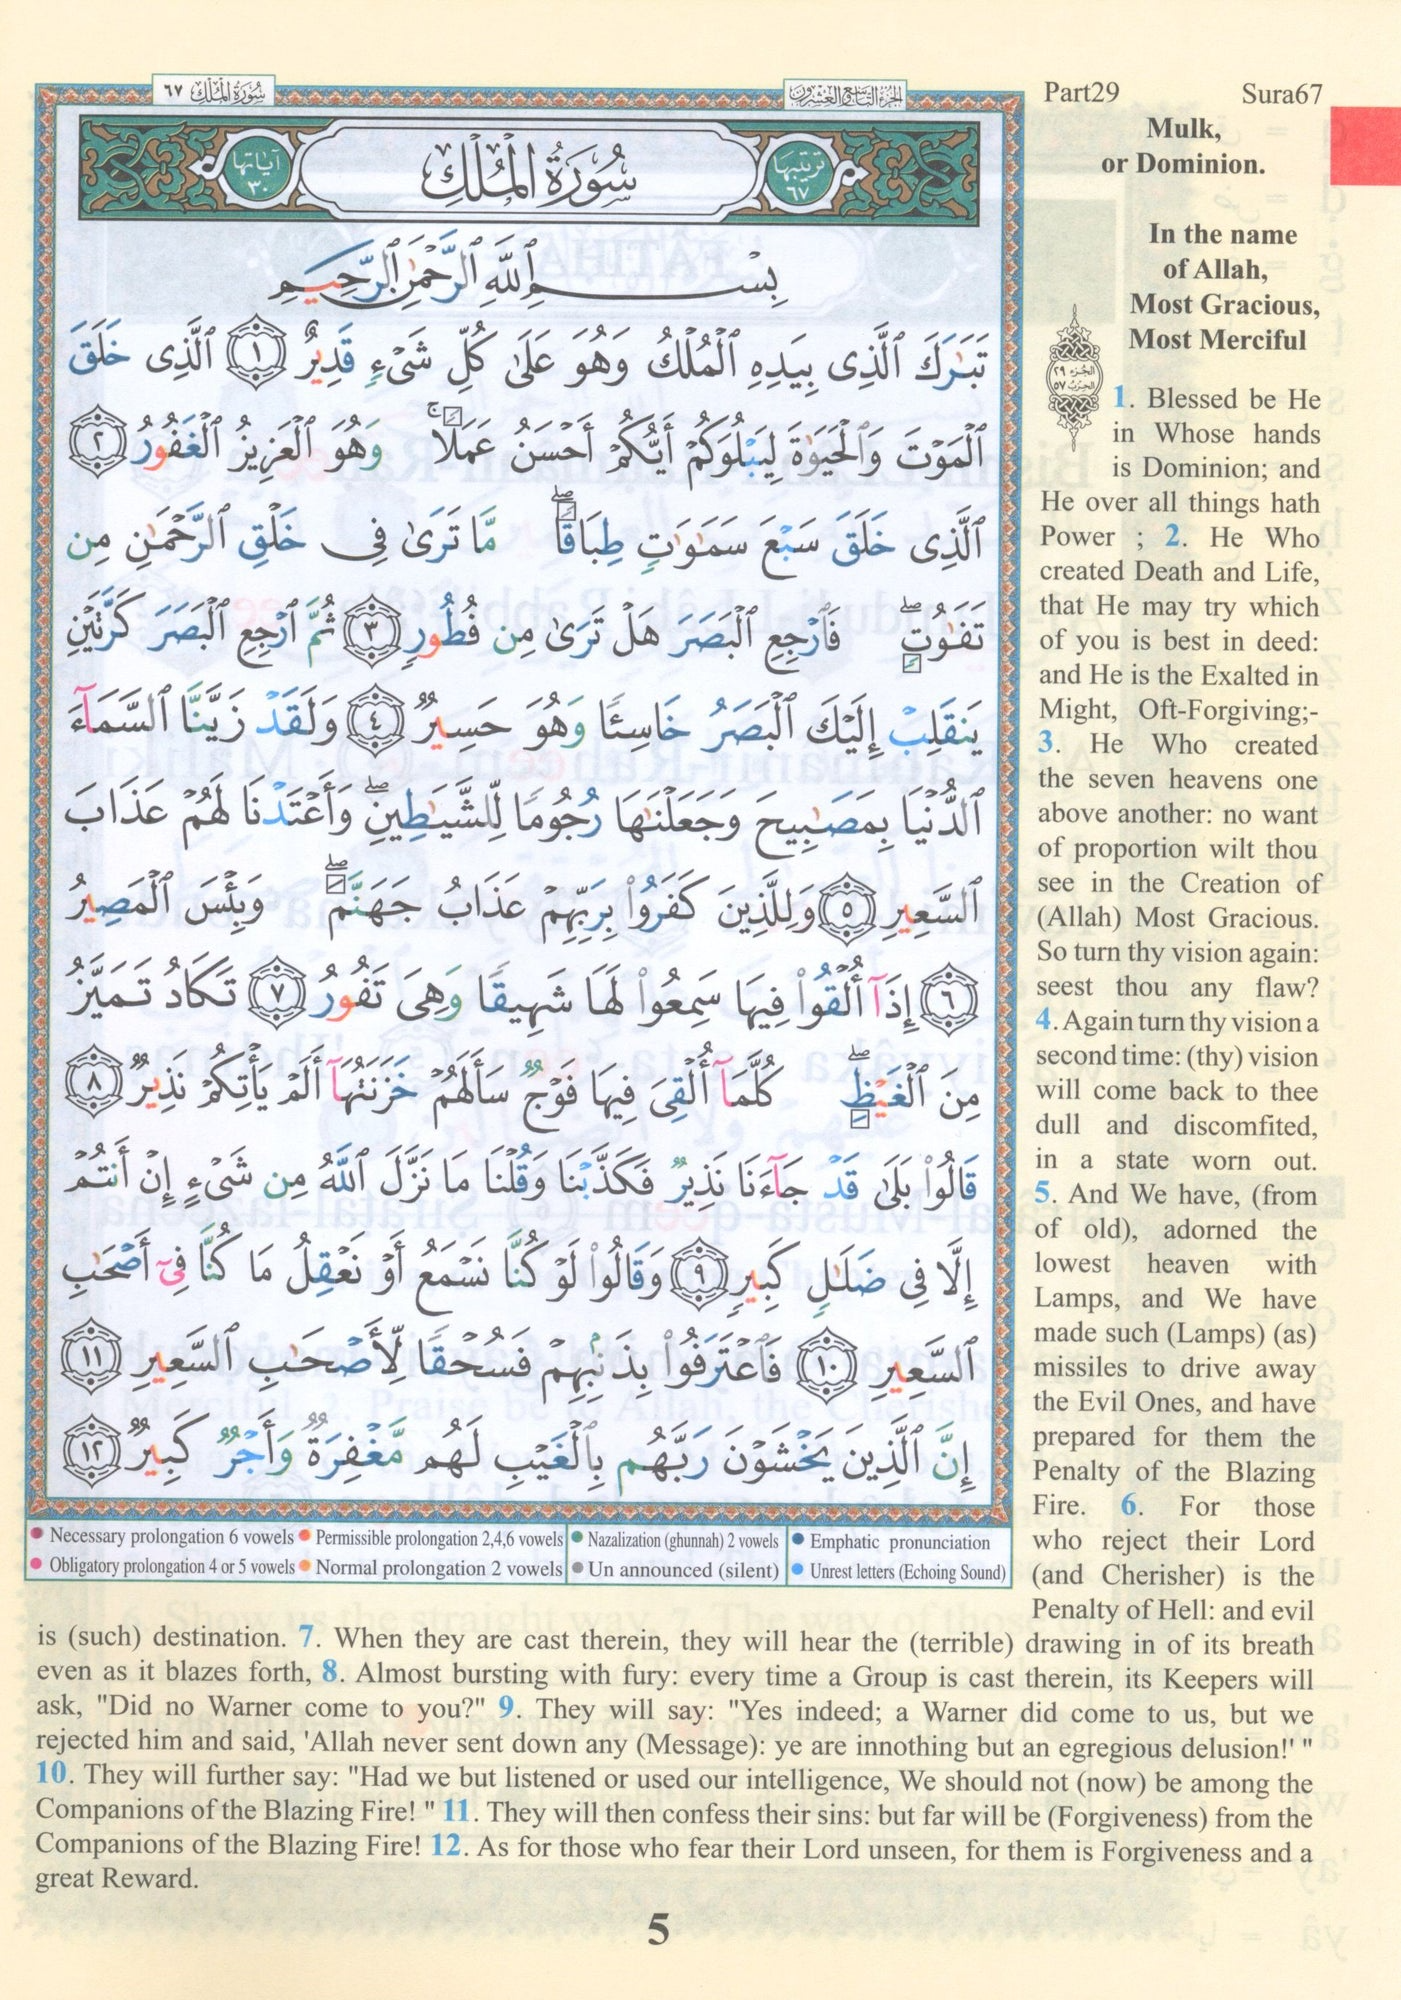 سُورَةُ الْمُلْكِ ٦٧
الجزء التاسع والعشرون
Part29 Sura67
آياتها ٣٠
سُورَةُ الْمُلْكِ
ترتيبها ٦٧
بِسْمِ ٱللَّهِ ٱلرَّحْمَٰنِ ٱلرَّحِيمِ
تَبَٰرَكَ ٱلَّذِى بِيَدِهِ ٱلْمُلْكُ وَهُوَ عَلَىٰ كُلِّ شَىْءٍ قَدِيرٌ ١ ٱلَّذِى خَلَقَ
ٱلْمَوْتَ وَٱلْحَيَوٰةَ لِيَبْلُوَكُمْ أَيُّكُمْ أَحْسَنُ عَمَلًا ۚ وَهُوَ ٱلْعَزِيزُ ٱلْغَفُورُ ٢
ٱلَّذِى خَلَقَ سَبْعَ سَمَٰوَٰتٍ طِبَاقًا ۖ مَّا تَرَىٰ فِى خَلْقِ ٱلرَّحْمَٰنِ مِن
تَفَٰوُتٍ ۖ فَٱرْجِعِ ٱلْبَصَرَ هَلْ تَرَىٰ مِن فُطُورٍ ٣ ثُمَّ ٱرْجِعِ ٱلْبَصَرَ كَرَّتَيْنِ
يَنقَلِبْ إِلَيْكَ ٱلْبَصَرُ خَاسِئًا وَهُوَ حَسِيرٌ ٤ وَلَقَدْ زَيَّنَّا ٱلسَّمَآءَ
ٱلدُّنْيَا بِمَصَٰبِيحَ وَجَعَلْنَٰهَا رُجُومًا لِّلشَّيَٰطِينِ ۖ وَأَعْتَدْنَا لَهُمْ عَذَابَ
ٱلسَّعِيرِ ٥ وَلِلَّذِينَ كَفَرُوا۟ بِرَبِّهِمْ عَذَابُ جَهَنَّمَ ۖ وَبِئْسَ ٱلْمَصِيرُ
٦ إِذَآ أُلْقُوا۟ فِيهَا سَمِعُوا۟ لَهَا شَهِيقًا وَهِىَ تَفُورُ ٧ تَكَادُ تَمَيَّزُ
مِنَ ٱلْغَيْظِ ۖ كُلَّمَآ أُلْقِىَ فِيهَا فَوْجٌ سَأَلَهُمْ خَزَنَتُهَآ أَلَمْ يَأْتِكُمْ نَذِيرٌ ٨
قَالُوا۟ بَلَىٰ قَدْ جَآءَنَا نَذِيرٌ فَكَذَّبْنَا وَقُلْنَا مَا نَزَّلَ ٱللَّهُ مِن شَىْءٍ إِنْ أَنتُمْ
إِلَّا فِى ضَلَٰلٍ كَبِيرٍ ٩ وَقَالُوا۟ لَوْ كُنَّا نَسْمَعُ أَوْ نَعْقِلُ مَا كُنَّا فِىٓ أَصْحَٰبِ
ٱلسَّعِيرِ ١٠ فَٱعْتَرَفُوا۟ بِذَنۢبِهِمْ فَسُحْقًا لِّأَصْحَٰبِ ٱلسَّعِيرِ ١١
إِنَّ ٱلَّذِينَ يَخْشَوْنَ رَبَّهُم بِٱلْغَيْبِ لَهُم مَّغْفِرَةٌ وَأَجْرٌ كَبِيرٌ ١٢
Necessary prolongation 6 vowels Permissible prolongation 2,4,6 vowels Nazalization (ghunnah) 2 vowels Emphatic pronunciation
Obligatory prolongation 4 or 5 vowels Normal prolongation 2 vowels Un announced (silent) Unrest letters (Echoing Sound)
Mulk,
or Dominion.
In the name
of Allah,
Most Gracious,
Most Merciful
الجزء ٢٩
الحزب ٥٧
1. Blessed be He
in Whose hands
is Dominion; and
He over all things hath
Power ; 2. He Who
created Death and Life,
that He may try which
of you is best in deed:
and He is the Exalted in
Might, Oft-Forgiving;-
3. He Who created
the seven heavens one
above another: no want
of proportion wilt thou
see in the Creation of
(Allah) Most Gracious.
So turn thy vision again:
seest thou any flaw?
4. Again turn thy vision a
second time: (thy) vision
will come back to thee
dull and discomfited,
in a state worn out.
5. And We have, (from
of old), adorned the
lowest heaven with
Lamps, and We have
made such (Lamps) (as)
missiles to drive away
the Evil Ones, and have
prepared for them the
Penalty of the Blazing
Fire. 6. For those
who reject their Lord
(and Cherisher) is the
Penalty of Hell: and evil
is (such) destination. 7. When they are cast therein, they will hear the (terrible) drawing in of its breath
even as it blazes forth, 8. Almost bursting with fury: every time a Group is cast therein, its Keepers will
ask, "Did no Warner come to you?" 9. They will say: "Yes indeed; a Warner did come to us, but we
rejected him and said, 'Allah never sent down any (Message): ye are innothing but an egregious delusion!' "
10. They will further say: "Had we but listened or used our intelligence, We should not (now) be among the
Companions of the Blazing Fire! " 11. They will then confess their sins: but far will be (Forgiveness) from the
Companions of the Blazing Fire! 12. As for those who fear their Lord unseen, for them is Forgiveness and a
great Reward.
5